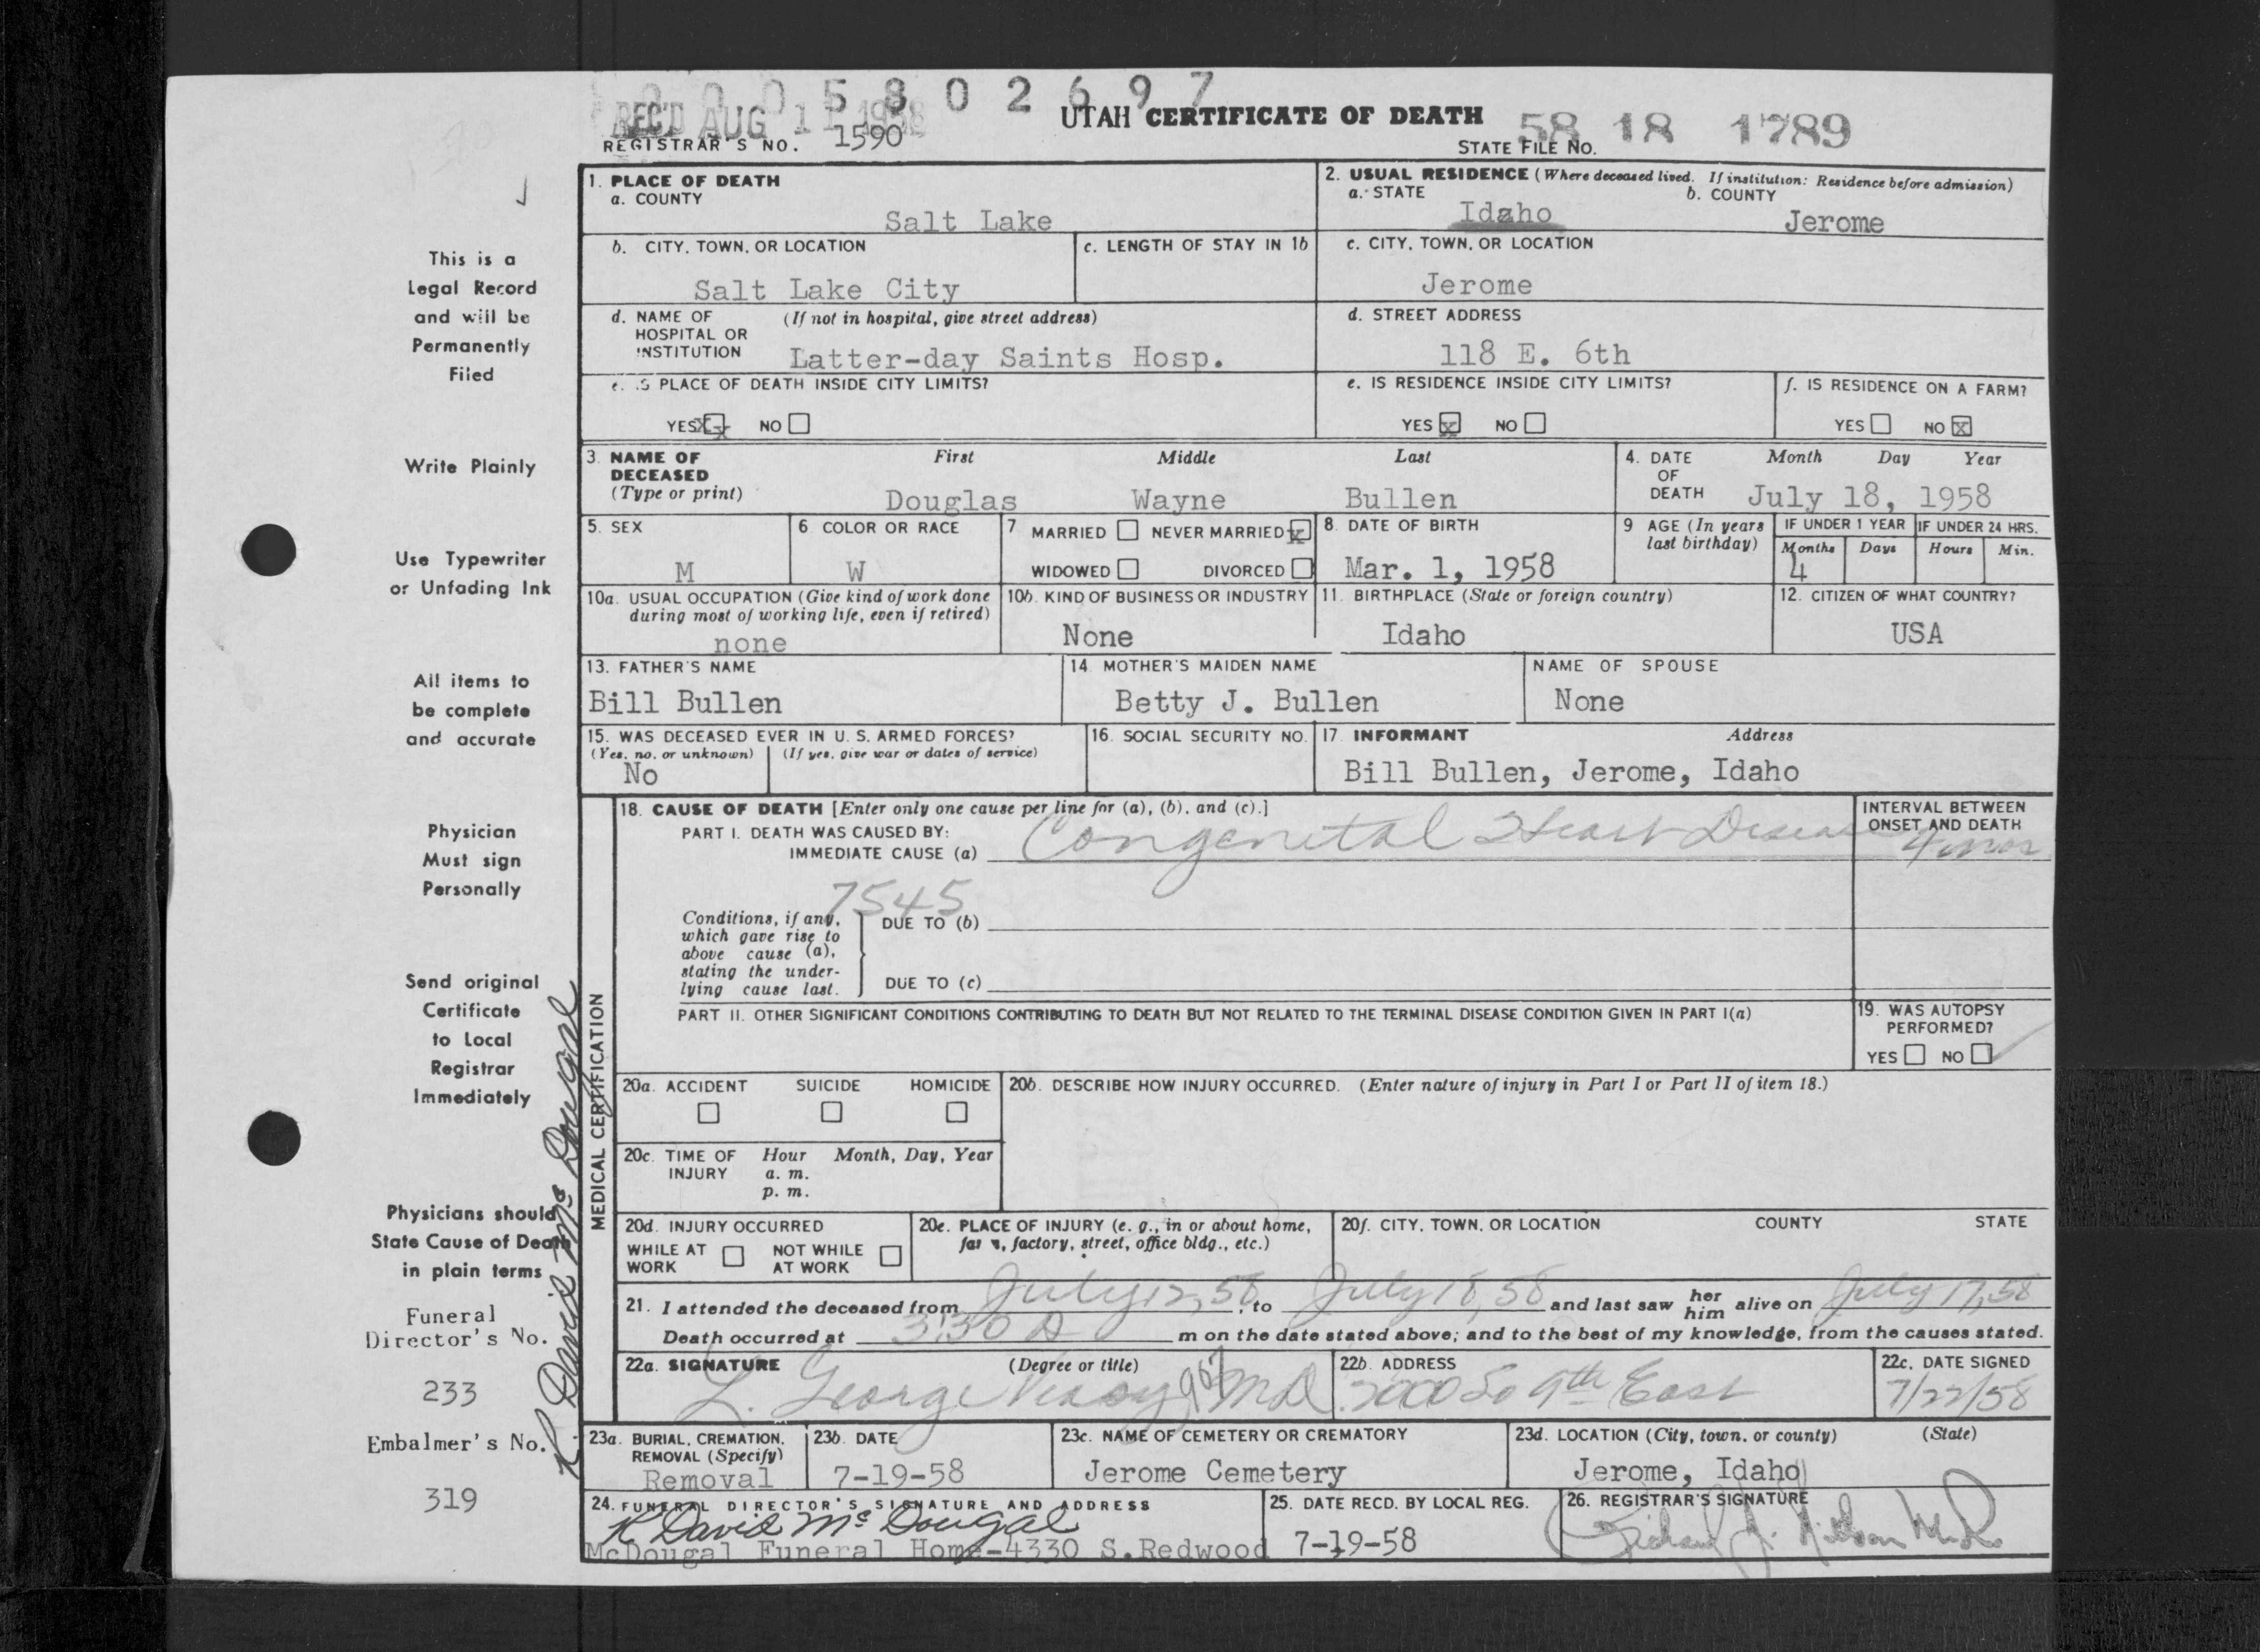 0 0 0 5 8 0 2 6 9 7
REC'D AUG 11 1958
UTAH CERTIFICATE OF DEATH
REGISTRAR'S NO. 1590
STATE FILE NO. 58 18 1789
1. PLACE OF DEATH
a. COUNTY
Salt Lake
2. USUAL RESIDENCE (Where deceased lived. If institution: Residence before admission)
a. STATE b. COUNTY
Idaho Jerome
b. CITY, TOWN, OR LOCATION
Salt Lake City
c. LENGTH OF STAY IN 1b
c. CITY, TOWN, OR LOCATION
Jerome
d. NAME OF (If not in hospital, give street address)
HOSPITAL OR
INSTITUTION Latter-day Saints Hosp.
d. STREET ADDRESS
118 E. 6th
e. IS PLACE OF DEATH INSIDE CITY LIMITS?
YES X NO
e. IS RESIDENCE INSIDE CITY LIMITS?
YES X NO
f. IS RESIDENCE ON A FARM?
YES NO X
3. NAME OF DECEASED (Type or print)
First Middle Last
Douglas Wayne Bullen
4. DATE OF DEATH
Month Day Year
July 18, 1958
5. SEX
M
6. COLOR OR RACE
W
7. MARRIED NEVER MARRIED X
WIDOWED DIVORCED
8. DATE OF BIRTH
Mar. 1, 1958
9 AGE (In years last birthday)
IF UNDER 1 YEAR IF UNDER 24 HRS.
Months Days Hours Min.
4
10a. USUAL OCCUPATION (Give kind of work done
during most of working life, even if retired)
none
10b. KIND OF BUSINESS OR INDUSTRY
None
11. BIRTHPLACE (State or foreign country)
Idaho
12. CITIZEN OF WHAT COUNTRY?
USA
13. FATHER'S NAME
Bill Bullen
14. MOTHER'S MAIDEN NAME
Betty J. Bullen
NAME OF SPOUSE
None
15. WAS DECEASED EVER IN U. S. ARMED FORCES?
(Yes, no, or unknown) (If yes, give war or dates of service)
No
16. SOCIAL SECURITY NO.
17. INFORMANT Address
Bill Bullen, Jerome, Idaho
MEDICAL CERTIFICATION
18. CAUSE OF DEATH [Enter only one cause per line for (a), (b), and (c).]
PART I. DEATH WAS CAUSED BY:
IMMEDIATE CAUSE (a) Congenital Heart Disease
INTERVAL BETWEEN
ONSET AND DEATH
4 mos
7545
Conditions, if any,
which gave rise to
above cause (a),
stating the under-
lying cause last.
DUE TO (b)
DUE TO (c)
PART II. OTHER SIGNIFICANT CONDITIONS CONTRIBUTING TO DEATH BUT NOT RELATED TO THE TERMINAL DISEASE CONDITION GIVEN IN PART I(a)
19. WAS AUTOPSY
PERFORMED?
YES NO ✓
20a. ACCIDENT SUICIDE HOMICIDE
20b. DESCRIBE HOW INJURY OCCURRED. (Enter nature of injury in Part I or Part II of item 18.)
20c. TIME OF INJURY
Hour Month, Day, Year
a. m.
p. m.
20d. INJURY OCCURRED
WHILE AT WORK NOT WHILE AT WORK
20e. PLACE OF INJURY (e. g., in or about home,
factory, street, office bldg., etc.)
20f. CITY, TOWN, OR LOCATION COUNTY STATE
21. I attended the deceased from July 12, 58, to July 18, 58 and last saw her him alive on July 17, 58
Death occurred at 3:30 A m on the date stated above; and to the best of my knowledge, from the causes stated.
22a. SIGNATURE (Degree or title)
L. George MD
22b. ADDRESS
2000 So 9th East
22c. DATE SIGNED
7/22/58
23a. BURIAL, CREMATION,
REMOVAL (Specify)
Removal
23b. DATE
7-19-58
23c. NAME OF CEMETERY OR CREMATORY
Jerome Cemetery
23d. LOCATION (City, town, or county) (State)
Jerome, Idaho
24. FUNERAL DIRECTOR'S SIGNATURE AND ADDRESS
R David McDougal
McDougal Funeral Home-4330 S.Redwood
25. DATE RECD. BY LOCAL REG.
7-19-58
26. REGISTRAR'S SIGNATURE
Richard
This is a
Legal Record
and will be
Permanently
Filed
Write Plainly
Use Typewriter
or Unfading Ink
All items to
be complete
and accurate
Physician
Must sign
Personally
Send original
Certificate
to Local
Registrar
Immediately
Physicians should
State Cause of Death
in plain terms
Funeral
Director's No.
233
Embalmer's No.
319
R David McDougal